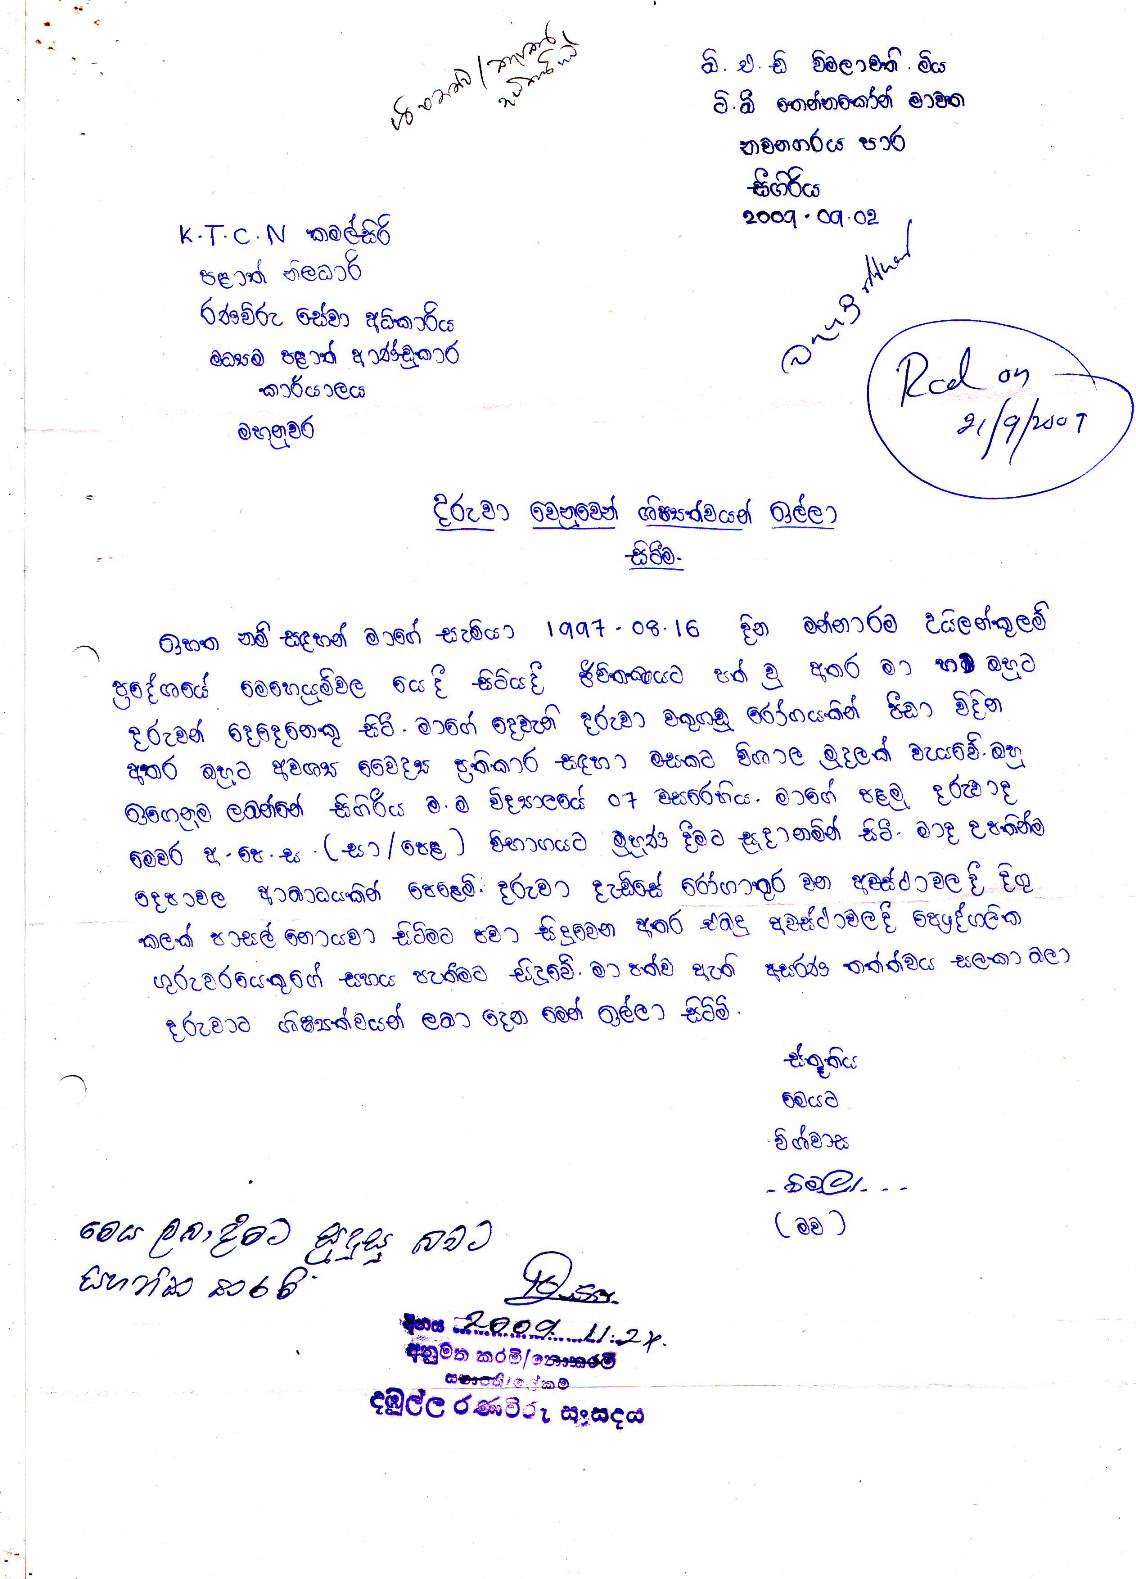 ඩී. ඒ. ඩී විමලාවතී. මිය
ටී. බී තෙන්නකෝන් මාවත
නවනගරය පාර
සීගිරිය
2009.09.02
K.T.C.N කමල්සිරි
පළාත් නිලධාරි
රණවිරු සේවා අධිකාරිය
මධ්‍යම පළාත් ආණ්ඩුකාර
කාර්යාලය
මහනුවර
Rcd on
21/9/2009
දරුවා වෙනුවෙන් ශිෂ්‍යත්වයක් ඉල්ලා
සිටීම.
ඉහත නම් සඳහන් මාගේ සැමියා 1997.08.16 දින මන්නාරම උයිලන්කුලම්
ප්‍රදේශයේ මෙහෙයුම්වල යෙදී සිටියදී ජීවිතක්ෂයට පත් වූ අතර මා හට ඔහුට
දරුවන් දෙදෙනෙකු සිටී. මාගේ දෙවැනි දරුවා වකුගඩු රෝගයකින් පීඩා විදින
අතර ඔහුට අවශ්‍ය වෛද්‍ය ප්‍රතිකාර සඳහා මසකට විශාල මුදලක් වැයවේ. ඔහු
ඉගෙනුම ලබන්නේ සීගිරිය ම.ම විද්‍යාලයේ 07 වසරෙහිය. මාගේ පළමු දරුවාද
මෙවර අ.පො.ස. (සා/පෙළ) විභාගයට මුහුණ දීමට සූදානමින් සිටී. මාද උපතින්ම
දෙපාවල ආබාධයකින් පෙළෙමි. දරුවා දැඩිසේ රෝගාතුර වන අවස්ථාවලදී දිගු
කලක් පාසල් නොයවා සිටීමට පවා සිදුවෙන අතර එබඳු අවස්ථාවලදී පෞද්ගලික
ගුරුවරයෙකුගේ සහය පැතීමට සිදුවේ. මා පත්ව ඇති අසරණ තත්ත්වය සලකා බලා
දරුවාට ශිෂ්‍යත්වයක් ලබා දෙන මෙන් ඉල්ලා සිටිමි.
ස්තූතිය
මෙයට
විශ්වාස
විමලා
(මව)
මෙය ලබාදීමට සුදුසු බවට
සහතික කරමි
දිනය 2009.11.27.
අනුමත කරමි/නොකරමි
සභාපති/ලේකම්
දඹුල්ල රණවිරු සංසදය